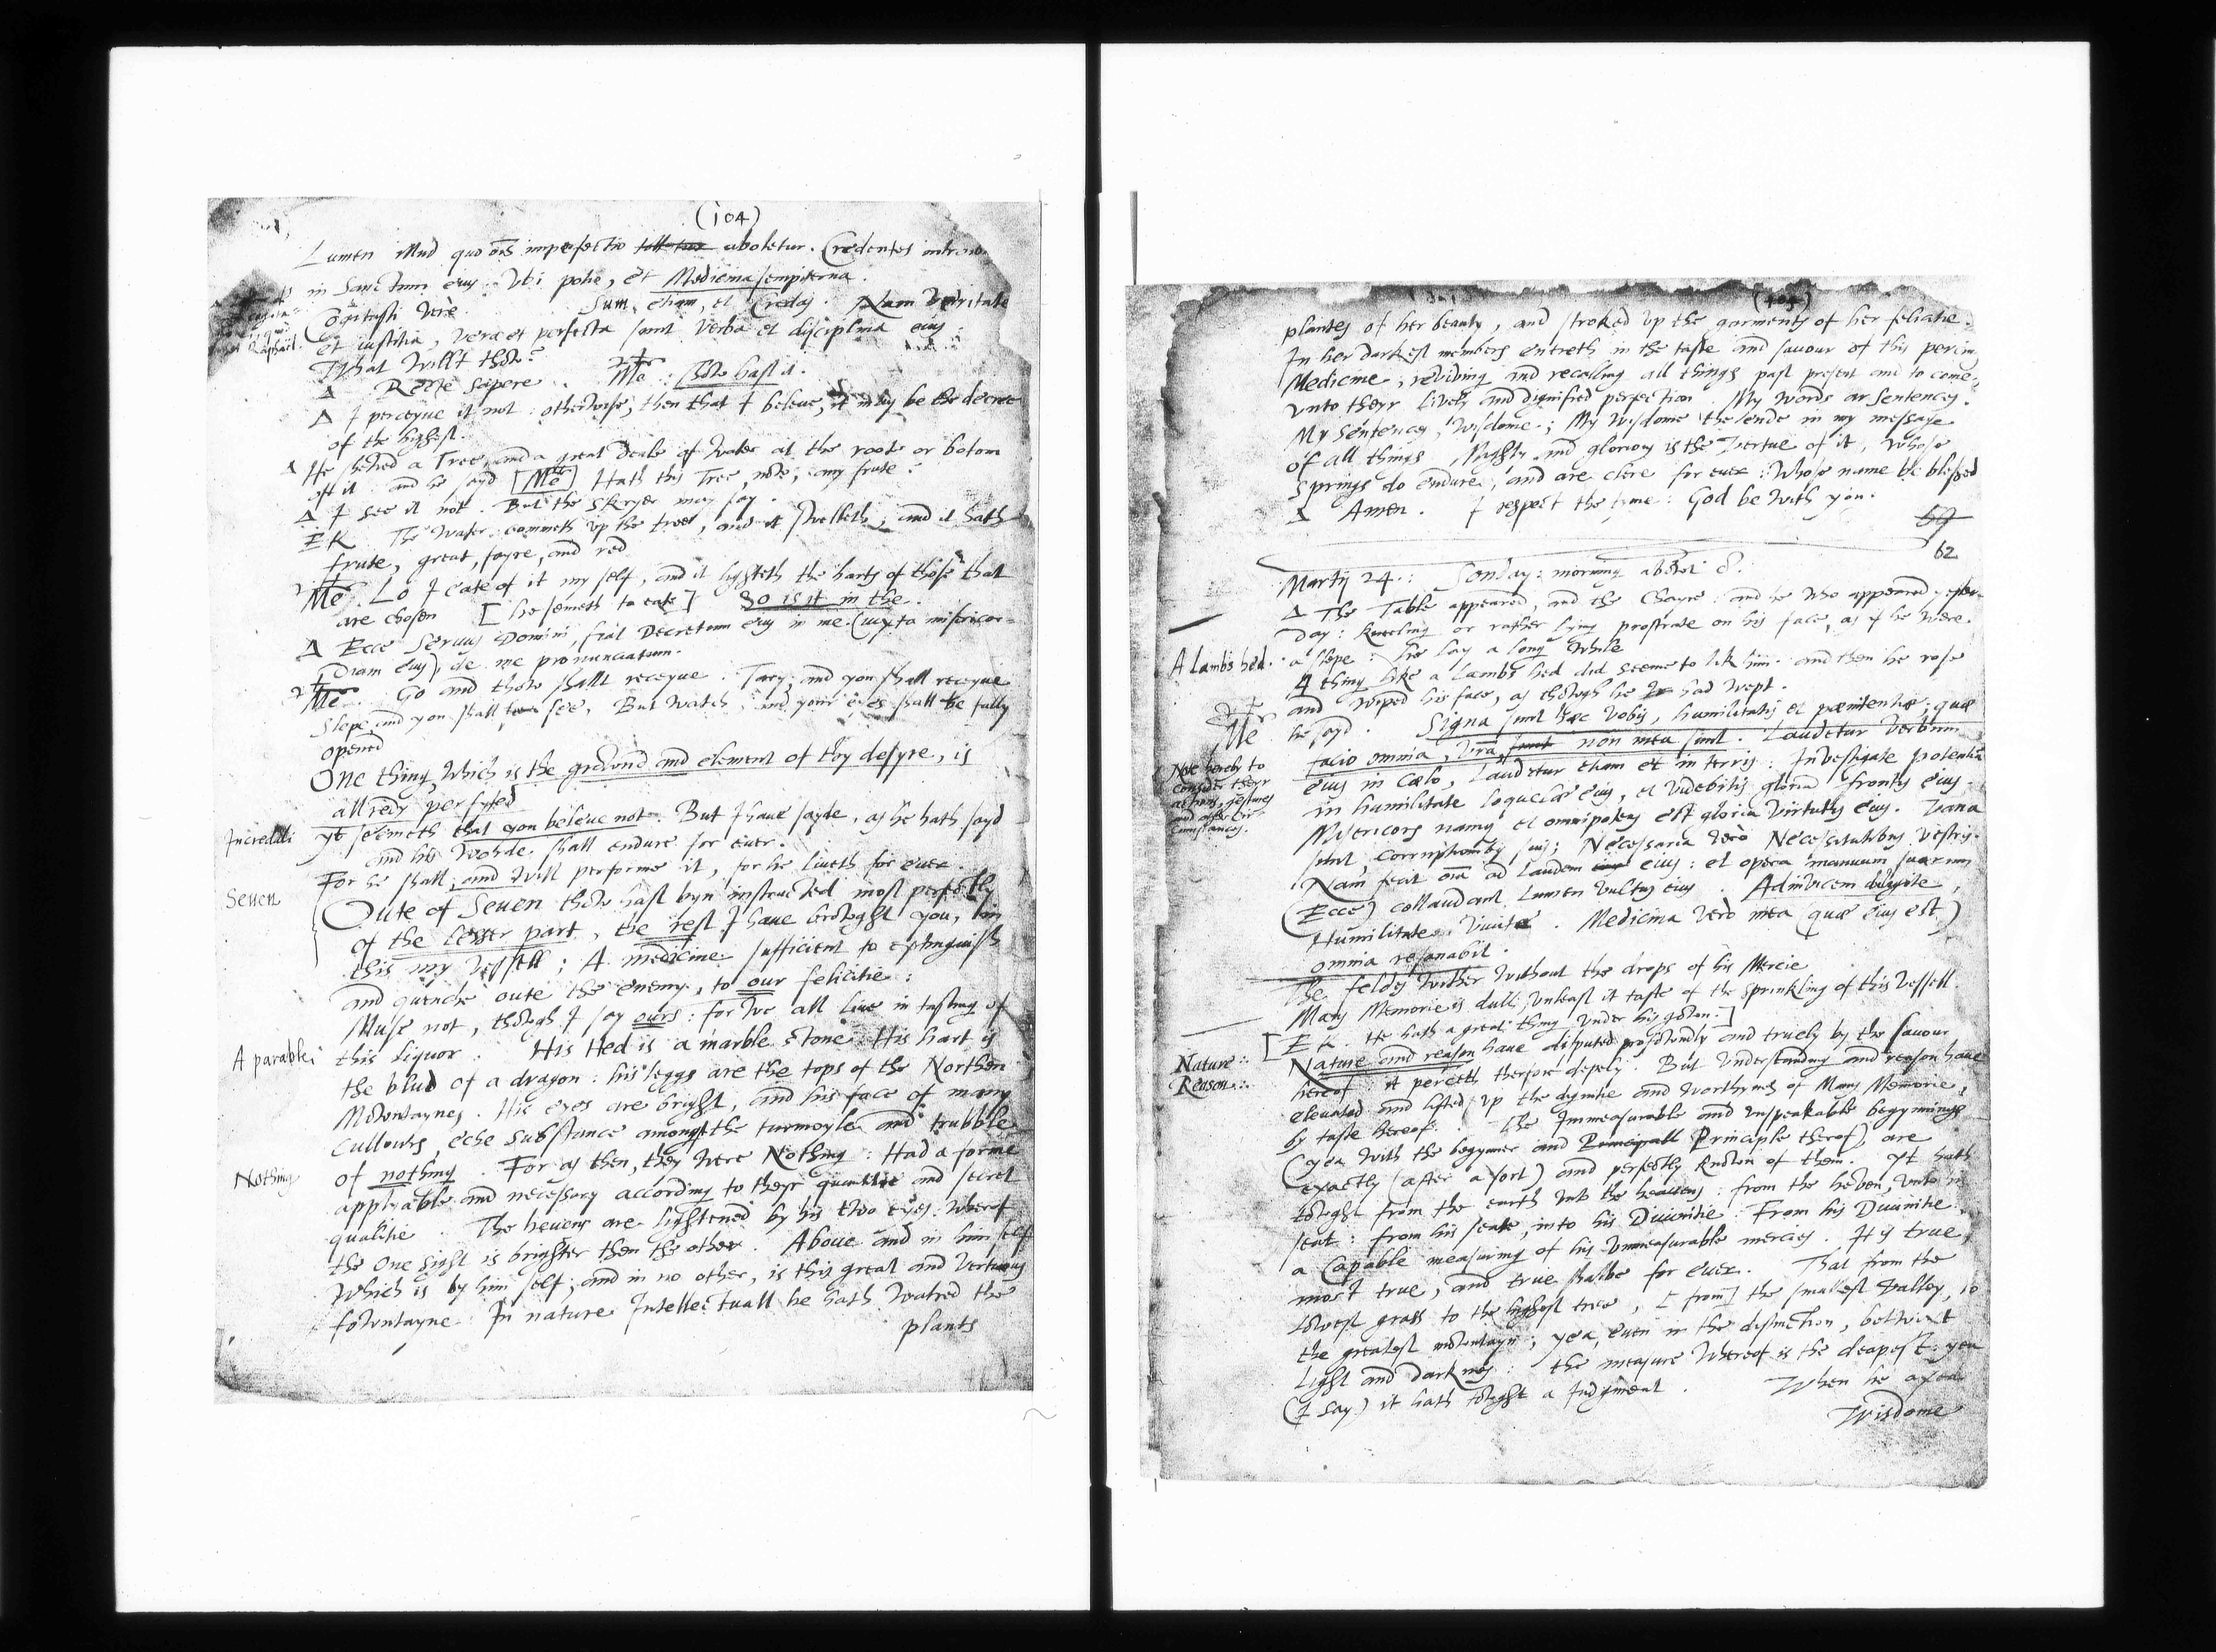 (104)
Lumen illud quo omnis imperfectio aboletur. Credentes introibunt
in Sanctum eius Vbi potio, et Medicina sempiterna.
Cogitasti verè. Sum, etiam, et Credas. Nam Veritate
et iustitia, vera et perfecta sunt verba et disciplina eius:
What willt thow?
Δ Recte sapere. Me: Thow hast it.
Δ I perceyue it not: otherwise, then that I beleue, it may be the decree
of the highest.
Δ He shewed a Tree, and a great deale of water at the roote or botom
off it and he sayd [Me] Hath this Tree, now, any frute?
Δ I see it not. But the skryer may say.
EK. The Water commeth vp the tree, and it swelleth, and it hath
frute, great, fayre, and red
Me. Lo I eate of it my self, and it lighteth the harts of those that
are chosen [he semeth to eate] So is it in the.
Δ Ecce Seruus Domini, fiat Decretum eius in me (iuxta misericor=
diam eius) de me pronunciatum.
Me. Go and thow shalt receyue. Tary, and you shall receyue
slepe, and you shall see, But watch, and your eyes shall be fully
opened
One thing, which is the grownd and element of thy desyre, is
allredy perfyted
Increduli
yt seemeth that you beleue not. But I haue sayde, as he hath sayd
and his worde shall endure for euer.
For he shall, and will performe it, for he liueth for euer.
Seuen
Oute of Seuen thow hast byn instructed most perfectly
of the lesser part, the rest I haue browght you, in
this my vessell; A medicine sufficient to extinguish
and quenche oute the enemy, to our felicitie:
Muse not, thowgh I say ours: for we all liue in tasting of
A parable:
this liquor. His Hed is a marble stone. His hart is
the blud of a dragon: his leggs are the tops of the Northen
Mowntaynes. His eyes are bright, and his face of many
Cullours, eche substance amongst the turmoyle and trubble
Nothing
of nothing. For as then, they were Nothing: Had a forme
applyable and necessary according to theyr quantitie and secret
qualitie. The heuens are lightened by his two eyes: wherof
the one sight is brighter then the other. Aboue and in him self
Which is by him self, and in no other, is this great and vertuous
fowntayne. In nature Intellectuall he hath watred the
plants
plantes of her beauty, and stroked vp the garments of her felicitie.
In her darkest members entreth in the taste and sauour of this percing
Medicine, reviuing and recalling all things past present and to come,
vnto theyr liuely and dignified perfection. My words ar sentences.
My sentences, wisdome; My wisdome the ende in my message
of all things. Mighty and glorious is the Vertue of it, Whose
springs do endure, and are clere for euer: Whose name be blessed
Δ Amen. I respect the tyme: God be with you.
62
Martij 24.: Sonday: morning abowt 8.
Δ The Table appeared, and the Chayre: and he who appeared yester
day: kneeling or rather lying prostrate on his face, as if he were
A Lambs hed.
a slepe: he lay a long while
A thing like a Lambs hed did seeme to lik him. and then he rose
and wiped his face, as thowgh he had wept.
Me
he sayd. Signa sunt haec vobis, humilitatis et paenitentiae; quae
Note hereby to
consider theyr
actions, gestures
and other cir
cumstances.
facio omnia, vera, non mea sunt. Laudetur verbum
eius in Caelo, Laudetur etiam et in terris: Investigate potentiam
in humilitate loquelae eius, et videbitis gloriam frontis eius.
Misericors namque et omnipotens est gloria virtutis eius. Vana
sunt corruptionibus suis; Necessaria verò Necessitatibus vestris.
Nam fecit omnia ad laudem eius: et opera manuum suarum
(Ecce) collaudant Lumen vultus eius. Adinvicem diligite,
Humilitate viuite. Medicina verò mea (quae eius est)
omnia resanabit.
The feldes wither without the drops of his Mercie
Mans Memorie is dull, vnleast it taste of the sprinkling of this vessell
[EK. He hath a great thing vnder his gown.]
Nature:.
Reason.:.
Nature and reason haue disputed profowndly and truely by the sauour
hereof: it perceth therfore depely. But vnderstanding and reason haue
eleuated and lifted vp the dignitie and worthynes of Mans Memorie,
by taste hereof. The Immeasurable and vnspeakable begynnings
(yea with the begynner and Principle therof), are
exactly (after a sort) and perfectly known of them. Yt hath
towght from the earth vnto the heauens: from the heven, vnto his
seat: from his seate, into his Diuinitie. From his Diuinitie,
a Capable measuring of his vnmeasurable mercies. It is true,
most true, and true shalbe for euer. That from the
lowest grass to the highest tree, [from] the smallest valley, to
the greatest mowntayn; yea, euen in the distinction, betwixt
Light and darknes: the measure whereof is the deapest: yea
(I say) it hath towght a Iudgment. When he axed
Wisdome